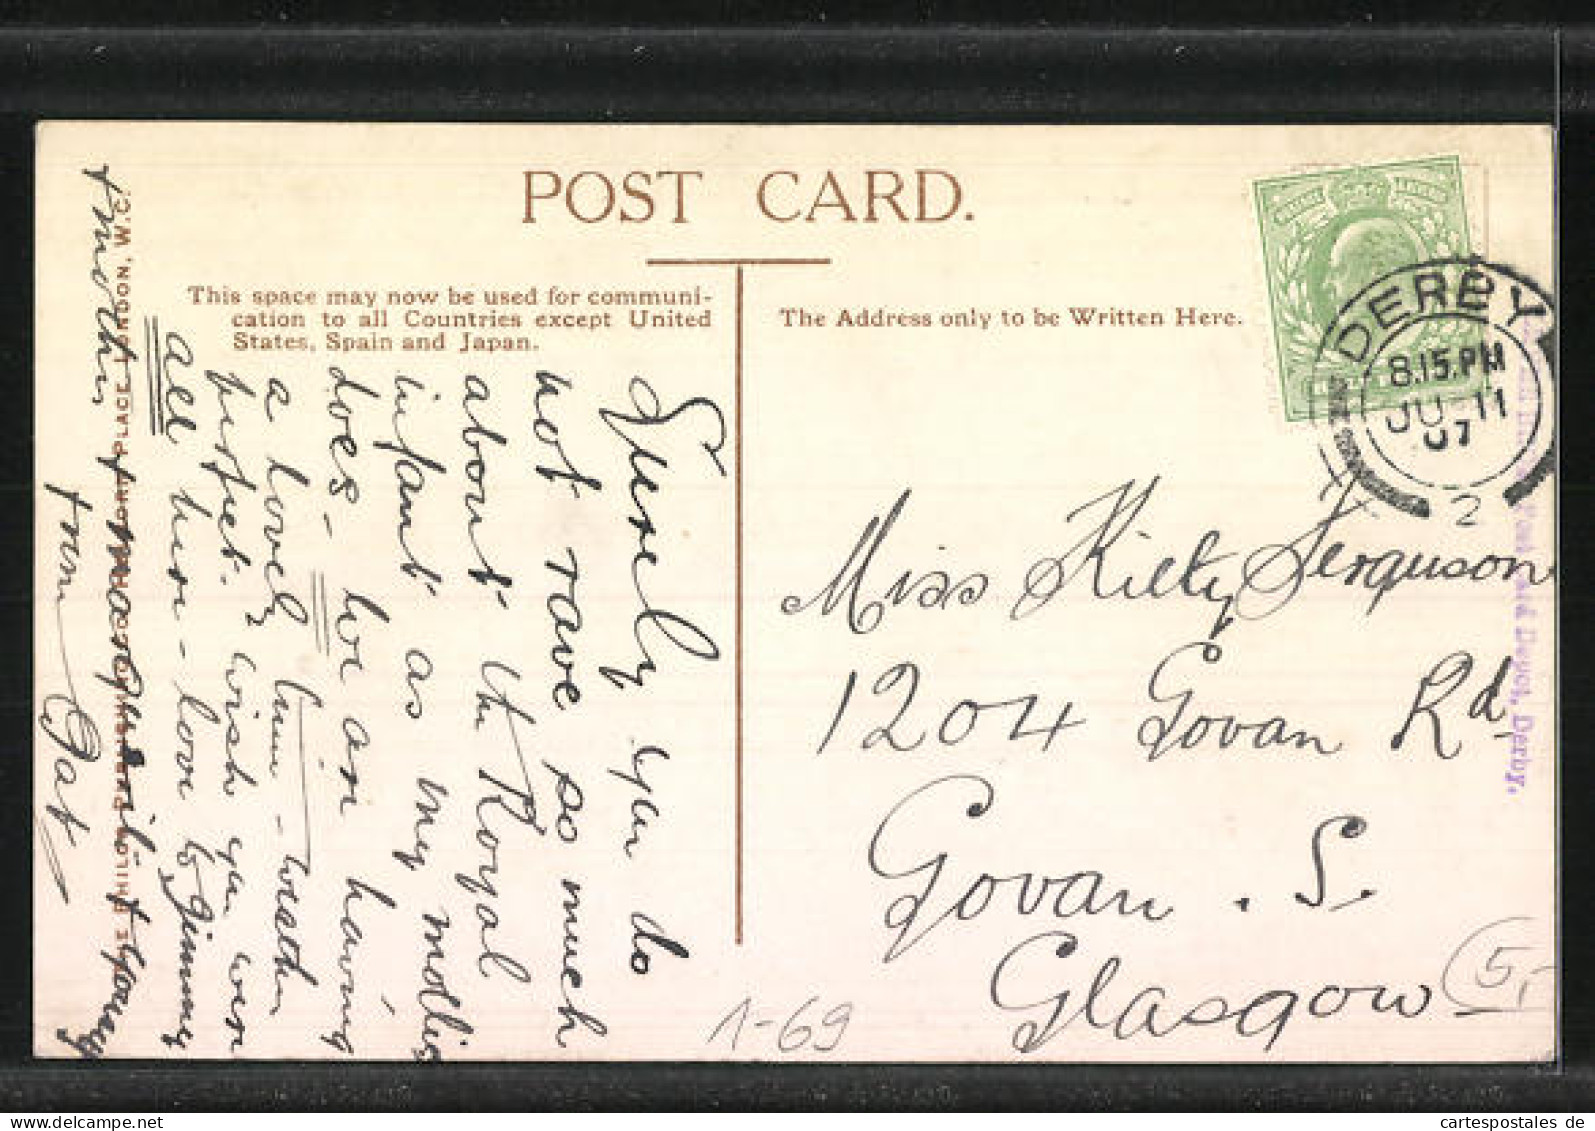 POST CARD.
This space may now be used for communi-
cation to all Countries except United
States, Spain and Japan.
The Address only to be Written Here.
DERBY
8.15.PM
JU 11
07
2
Miss Kitty Ferguson
1204 Govan Rd
Govan . S.
Glasgow
Surely you do
not rave so much
about the Royal
infant as my mother
does - we are having
a lovely time - weather
perfect. wish you were
all here - love to Jimmy
+ mother
from Pat
PLACE, LONDON, W.C.
Post Card Depot, Derby.
1-69
5,-
cartespostales de